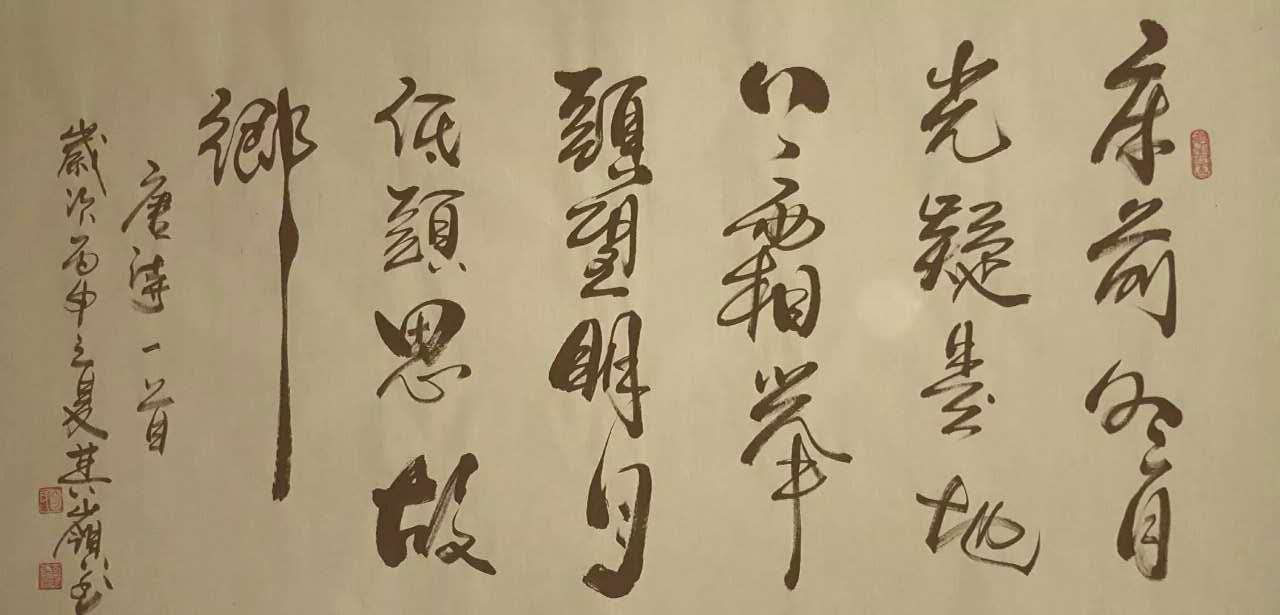 床前明月
光疑是地
上霜舉
頭望明月
低頭思故
鄉
唐詩一首
歲次丙申之夏其嶺書